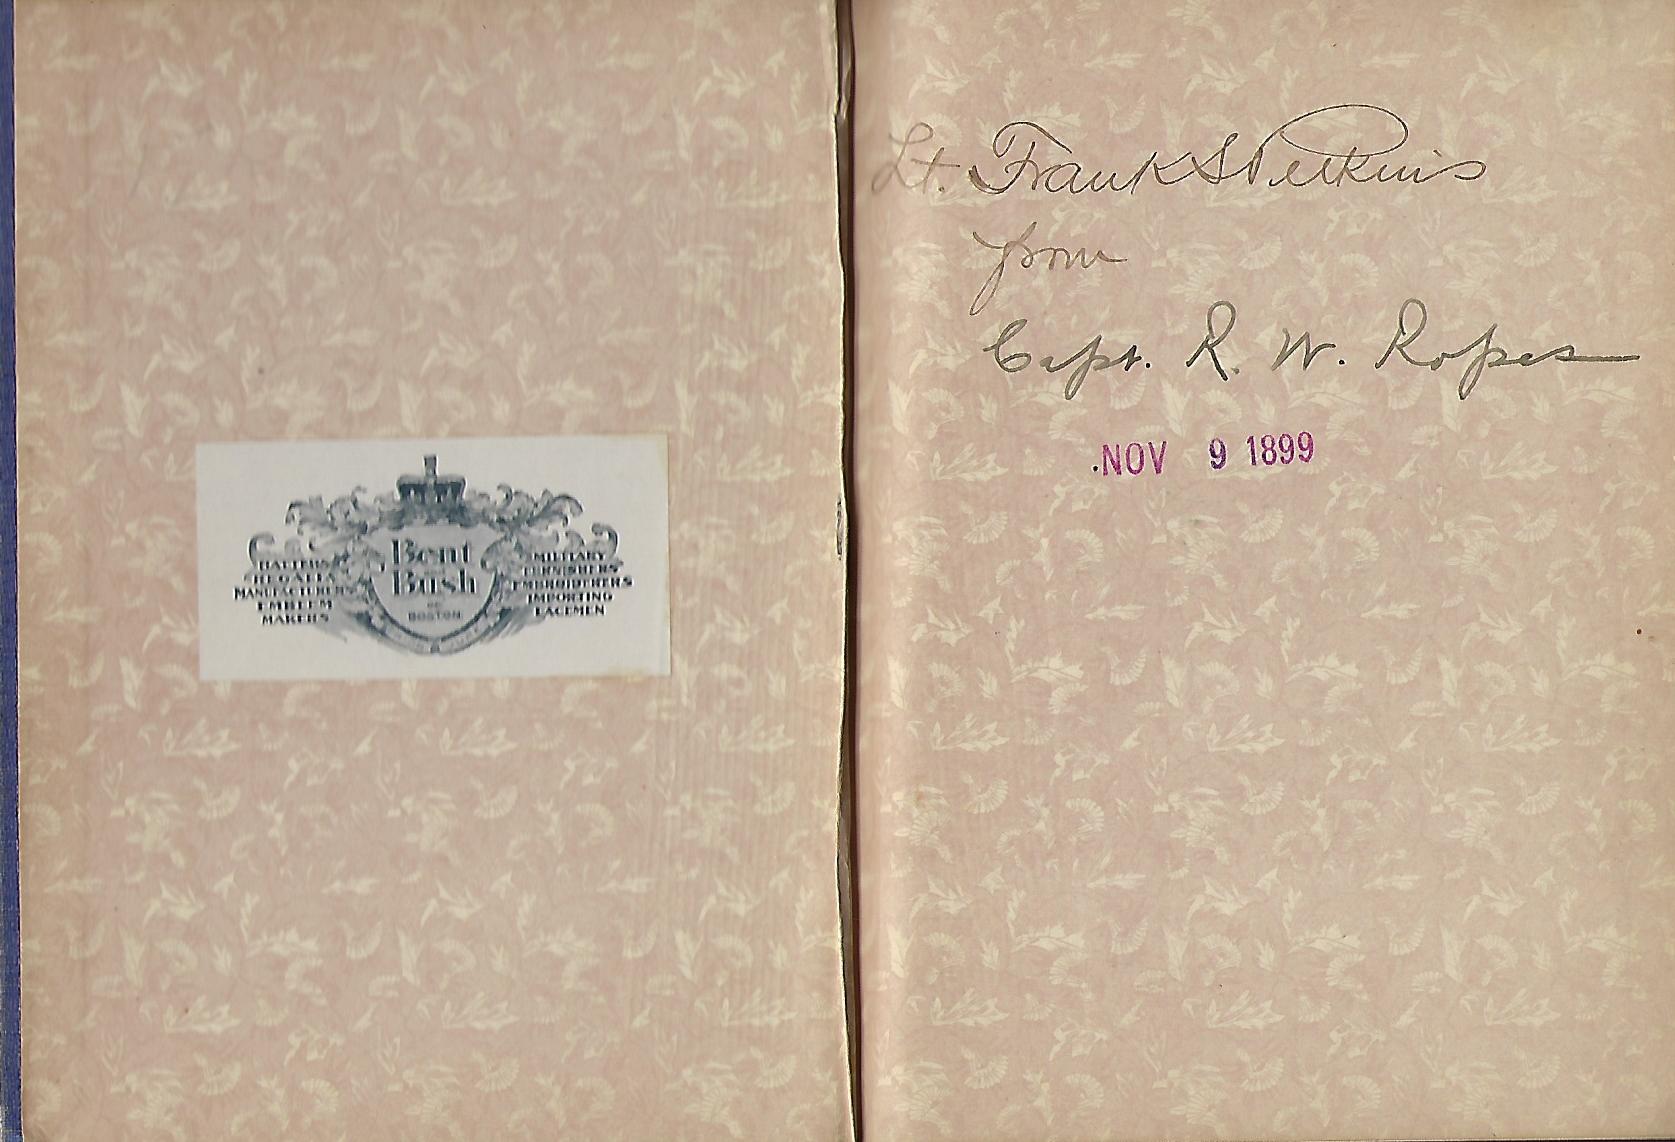 HATTERS
REGALIA
MANUFACTURERS
EMBLEM
MAKERS
Bent
Bush
BOSTON
MILITARY
FURNISHERS
EMBROIDERERS
IMPORTING
LACEMEN
Lt. Frank S Perkins
from
Capt. R. W. Ropes
NOV 9 1899